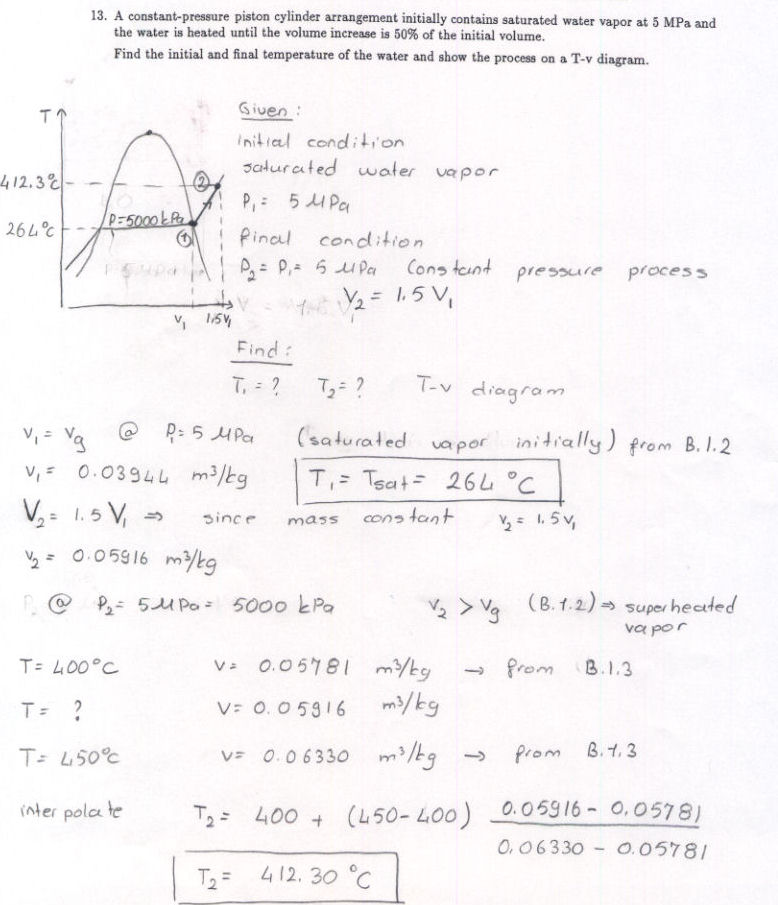 13. A constant-pressure piston cylinder arrangement initially contains saturated water vapor at 5 MPa and
the water is heated until the volume increase is 50% of the initial volume.
Find the initial and final temperature of the water and show the process on a T-v diagram.
T
412.3°C
264°C
P=5000 kPa
①
②
v₁ 1.5v₁
Given :
initial condition
saturated water vapor
P₁ = 5 MPa
final condition
P₂ = P₁ = 5 MPa Constant pressure process
V₂ = 1.5 V₁
Find :
T₁ = ? T₂ = ? T-v diagram
v₁ = vg @ P₁ = 5 MPa (saturated vapor initially) from B.1.2
v₁ = 0.03944 m³/kg T₁ = Tsat = 264 °C
V₂ = 1.5 V₁ ⇒ since mass constant v₂ = 1.5 v₁
v₂ = 0.05916 m³/kg
@ P₂ = 5 MPa = 5000 kPa v₂ > vg (B.1.2) ⇒ superheated
vapor
T = 400°C v = 0.05781 m³/kg → from B.1.3
T = ? v = 0.05916 m³/kg
T = 450°C v = 0.06330 m³/kg → from B.1.3
interpolate T₂ = 400 + (450-400) 0.05916 - 0.05781
0.06330 - 0.05781
T₂ = 412.30 °C